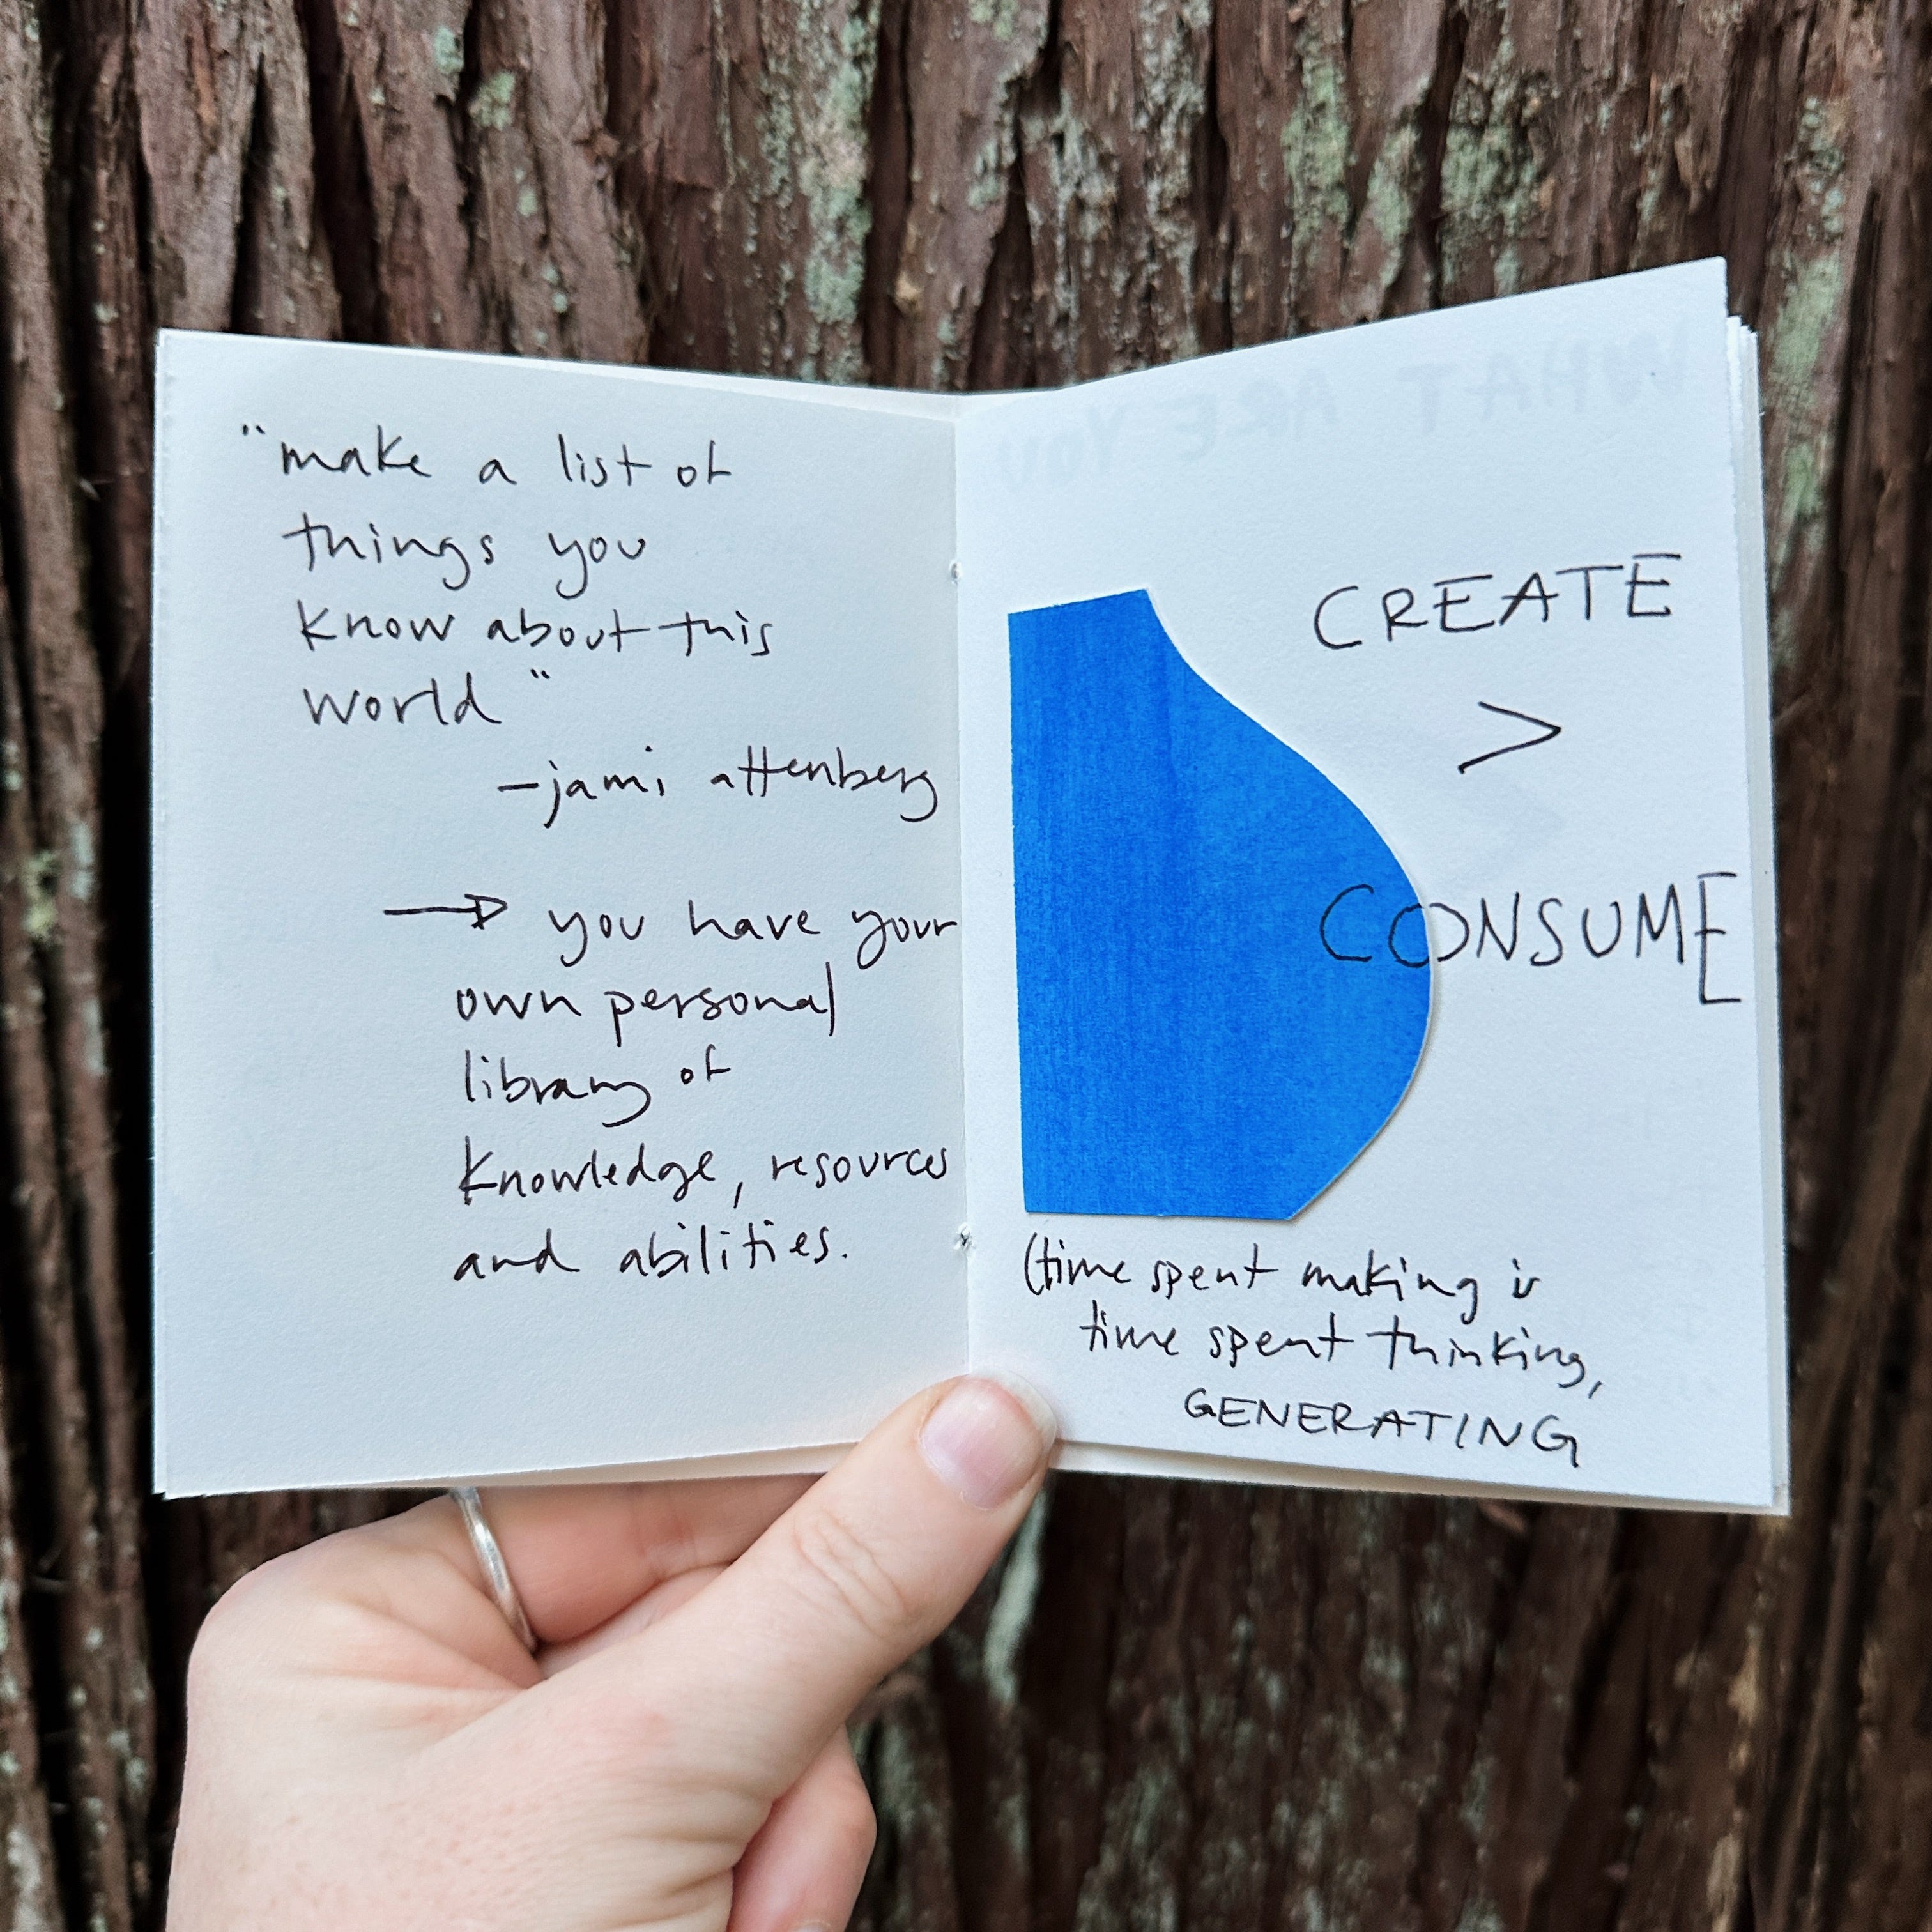 "make a list of
things you
know about this
world"
-jami attenberg
→ you have your
own personal
library of
knowledge, resources
and abilities.
WHAT ARE YOU
CREATE
>
CONSUME
(time spent making is
time spent thinking,
GENERATING